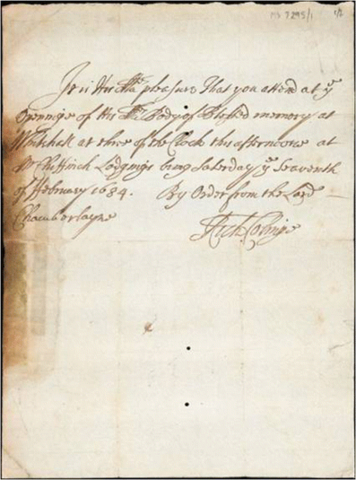 MS 7295/1 1/2
It is His Ma: pleasure That you attend at ye
Openinge of His Ma: Body of Blessed memory at
Whitehall at three of the Clock this afternoone at
Mr Chiffinch Lodgings being Saterday ye Seaventh
of February 1684. By Order from the Lord
Chamberlayne
Rich: Colinge